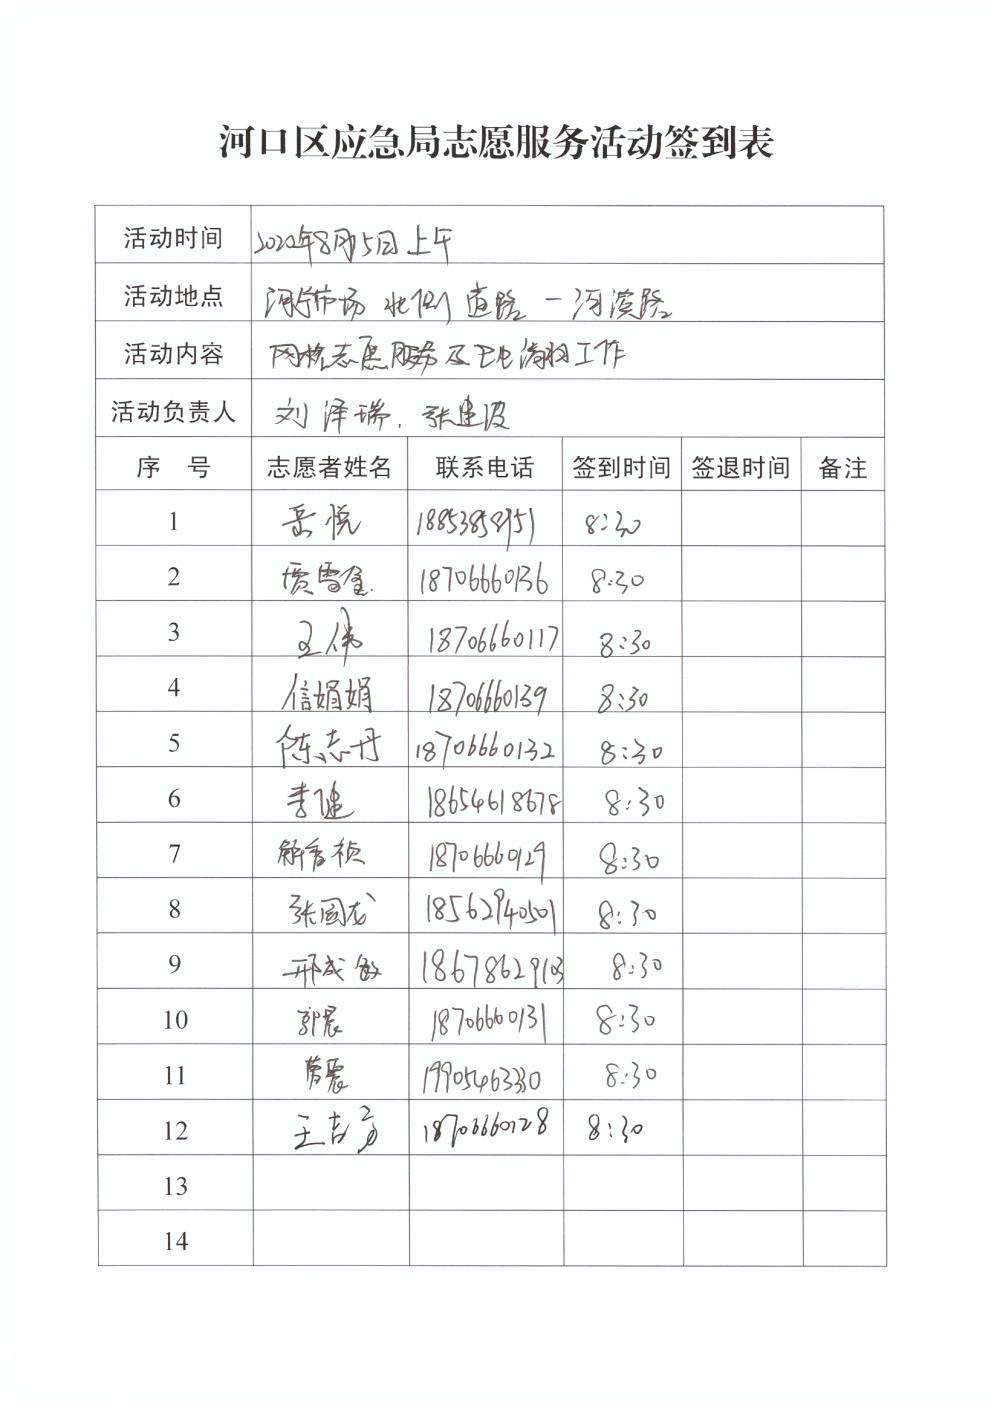 河口区应急局志愿服务活动签到表
活动时间 2022年8月5日上午
活动地点 市场北侧道路一河滨路
活动内容 网格志愿服务及卫生清扫工作
活动负责人 刘泽瑞、张建波
序 号 志愿者姓名 联系电话 签到时间 签退时间 备注
1 岳悦 18853858951 8:30
2 贾雪 18706660136 8:30
3 王伟 18706660117 8:30
4 信娟娟 18706660139 8:30
5 陈志丹 18706660132 8:30
6 李健 18654618678 8:30
7 解香祯 18706660129 8:30
8 张国龙 18562940501 8:30
9 邢成敏 18678629103 8:30
10 郭晨 18706660131 8:30
11 19905463330 8:30
12 王吉 18706660128 8:30
13
14